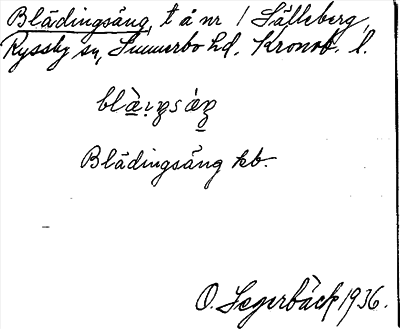 Blädingsäng, t å nr 1 Sälleberg,
Ryssby sn, Sunnerbo hd. Kronob. l.
Blädingsäng kb.
O. Segerbäck 1936.